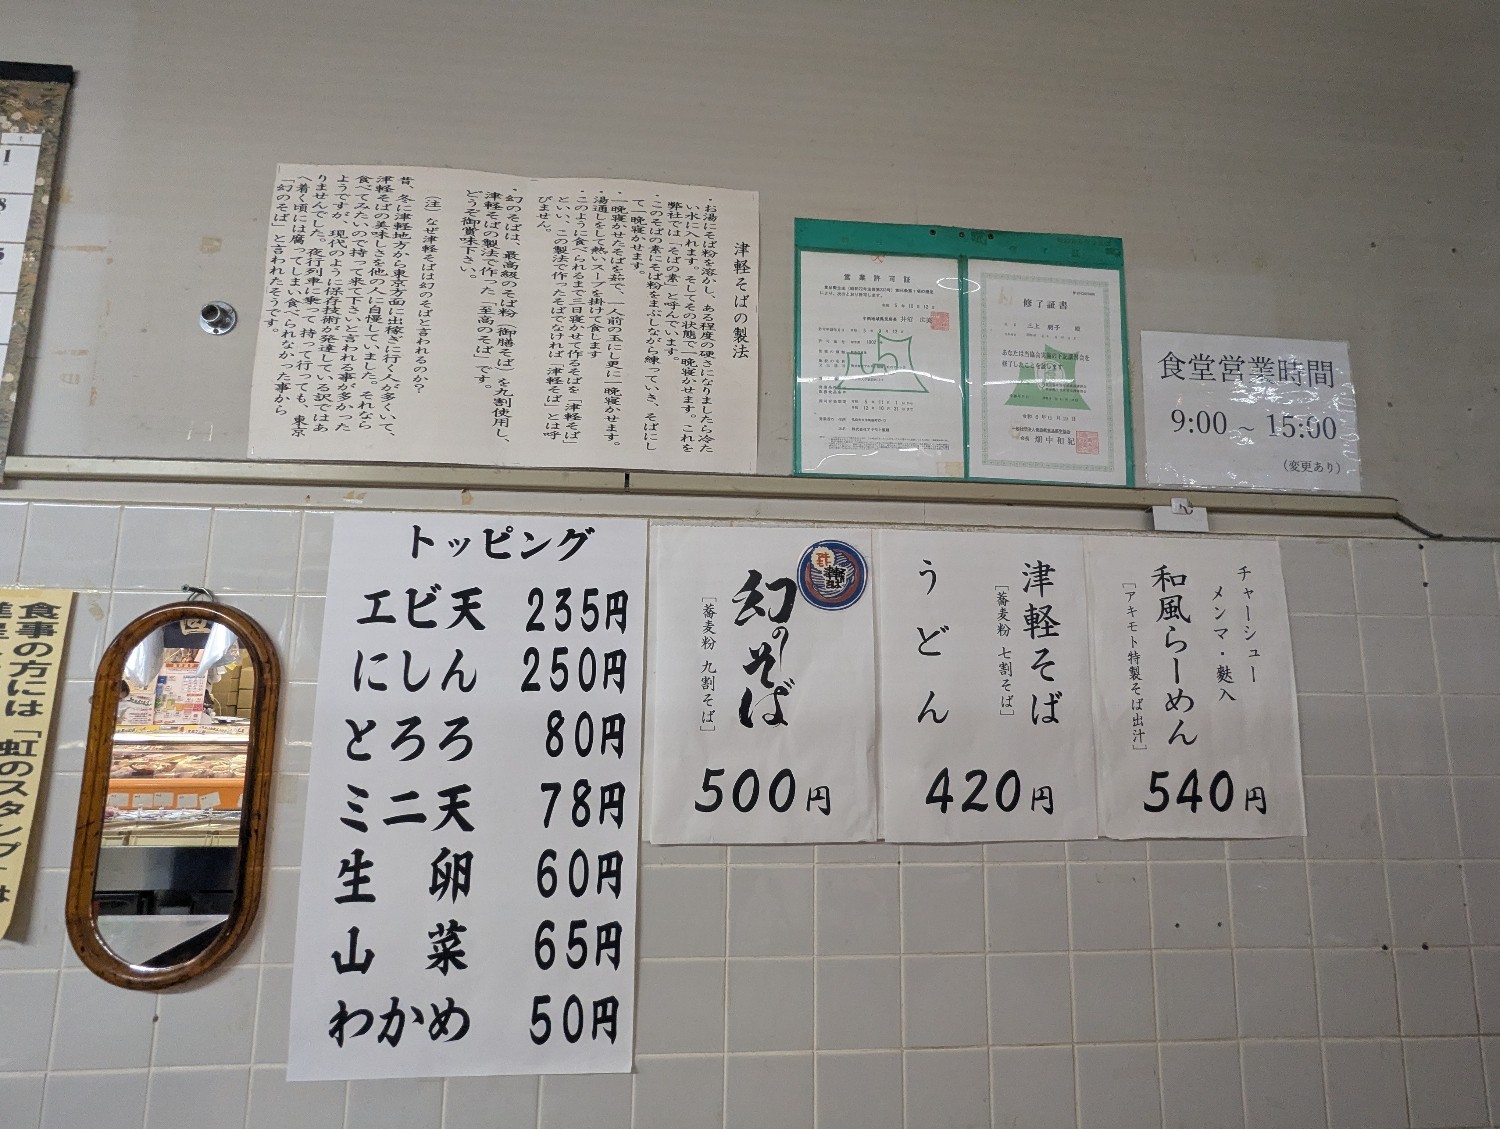 津軽そばの製法
・お湯にそば粉を溶かし、ある程度の硬さになりましたら冷た
い水に入れます。そしてその状態で一晩寝かせます。これを
弊社では「そばの素」と呼んでいます。
・このそばの素にそば粉をまぶしながら練っていき、そばにし
て一晩寝かせます。
・一晩寝かせたそばを茹で、一人前の玉にし更に一晩寝かせます。
・湯通しをして熱いスープを掛けて食します
・このように食べられるまで三日寝かせて作るそばを「津軽そば」
といい、この製法で作ったそばでなければ「津軽そば」とは呼
びません。
・幻のそばは、最高級のそば粉（御膳そば）を九割使用し、
津軽そばの製法で作った「至高のそば」です。
どうぞ御賞味下さい。
（注）なぜ津軽そばは幻のそばと言われるのか?
昔、冬に津軽地方から東京方面に出稼ぎに行く人が多くいて、
津軽そばの美味しさを他の人に自慢していました。それなら
食べてみたいので持って来て下さいと言われる事が多かった
ようですが、現代のように保存技術が発達している訳ではあ
りませんでした。夜行列車に乗って持って行っても、東京
へ着く頃には腐ってしまい食べられなかった事から
「幻のそば」と言われたそうです。
営業許可証
修了証書
あなたは当協会実施の下記講習会を
修了したことを証します
畑中和紀
食堂営業時間
9:00 ～ 15:00
（変更あり）
食事の方には「虹のスタンプ」は
トッピング
エビ天 235円
にしん 250円
とろろ 80円
ミニ天 78円
生 卵 60円
山 菜 65円
わかめ 50円
幻のそば
［蕎麦粉 九割そば］
500円
津軽そば
［蕎麦粉 七割そば］
うどん
420円
チャーシュー
メンマ・麩入
和風らーめん
［アキモト特製そば出汁］
540円